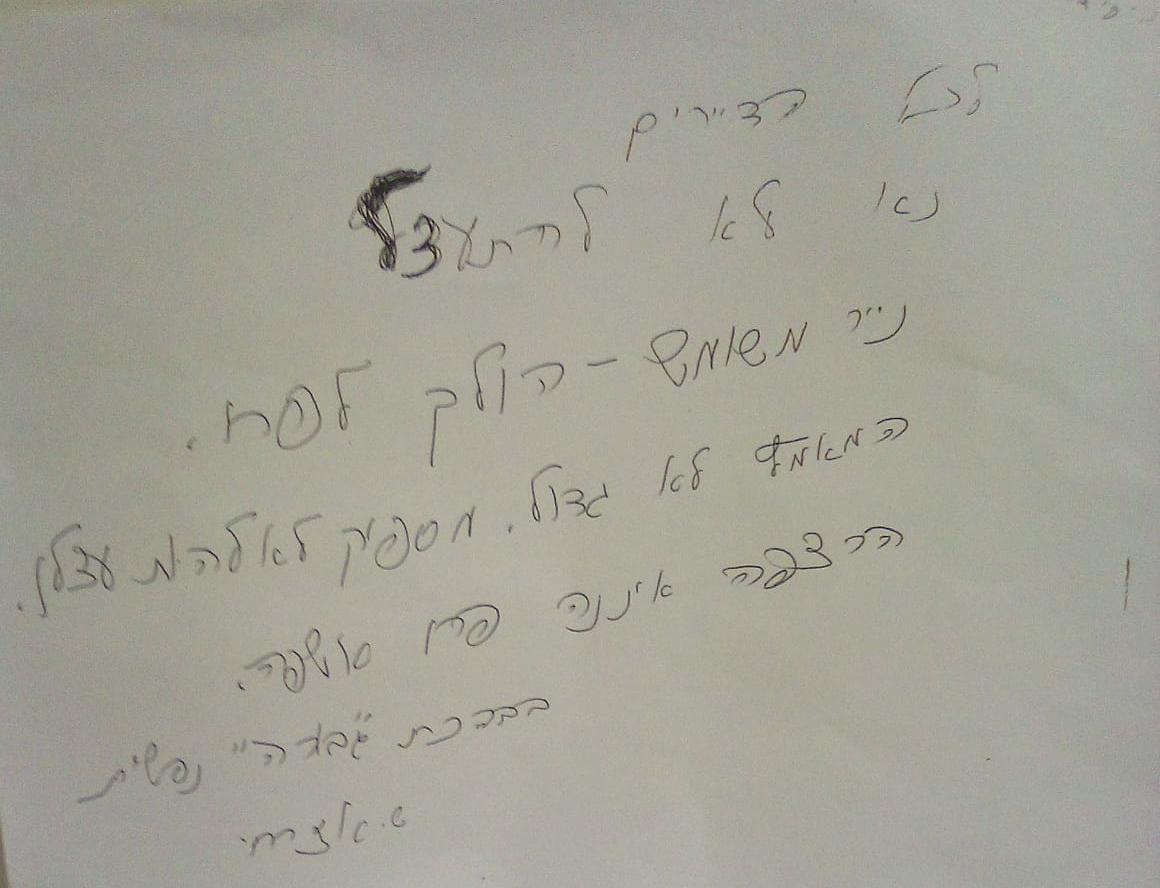 לכל הדיירים
נא לא להתעצל
נייר משומש - הולך לפח.
המאמץ לא גדול. מספיק לא להיות עצלן.
הרצפה איננה פח אשפה.
בברכת "גבורה" נפשית